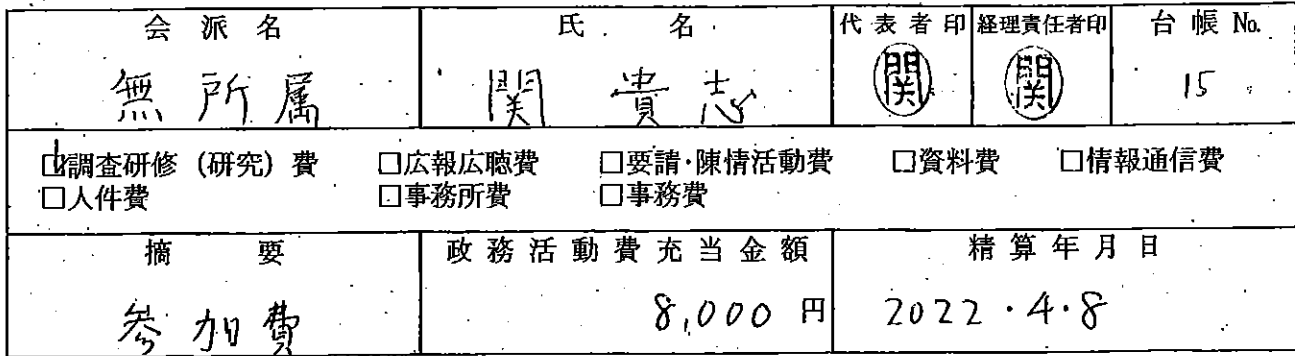 会派名 氏名 代表者印 経理責任者印 台帳No.
無所属 関貴志 関 関 15
☑調査研修(研究)費 □広報広聴費 □要請・陳情活動費 □資料費 □情報通信費
□人件費 □事務所費 □事務費
摘要 政務活動費充当金額 精算年月日
参加費 8,000円 2022・4・8